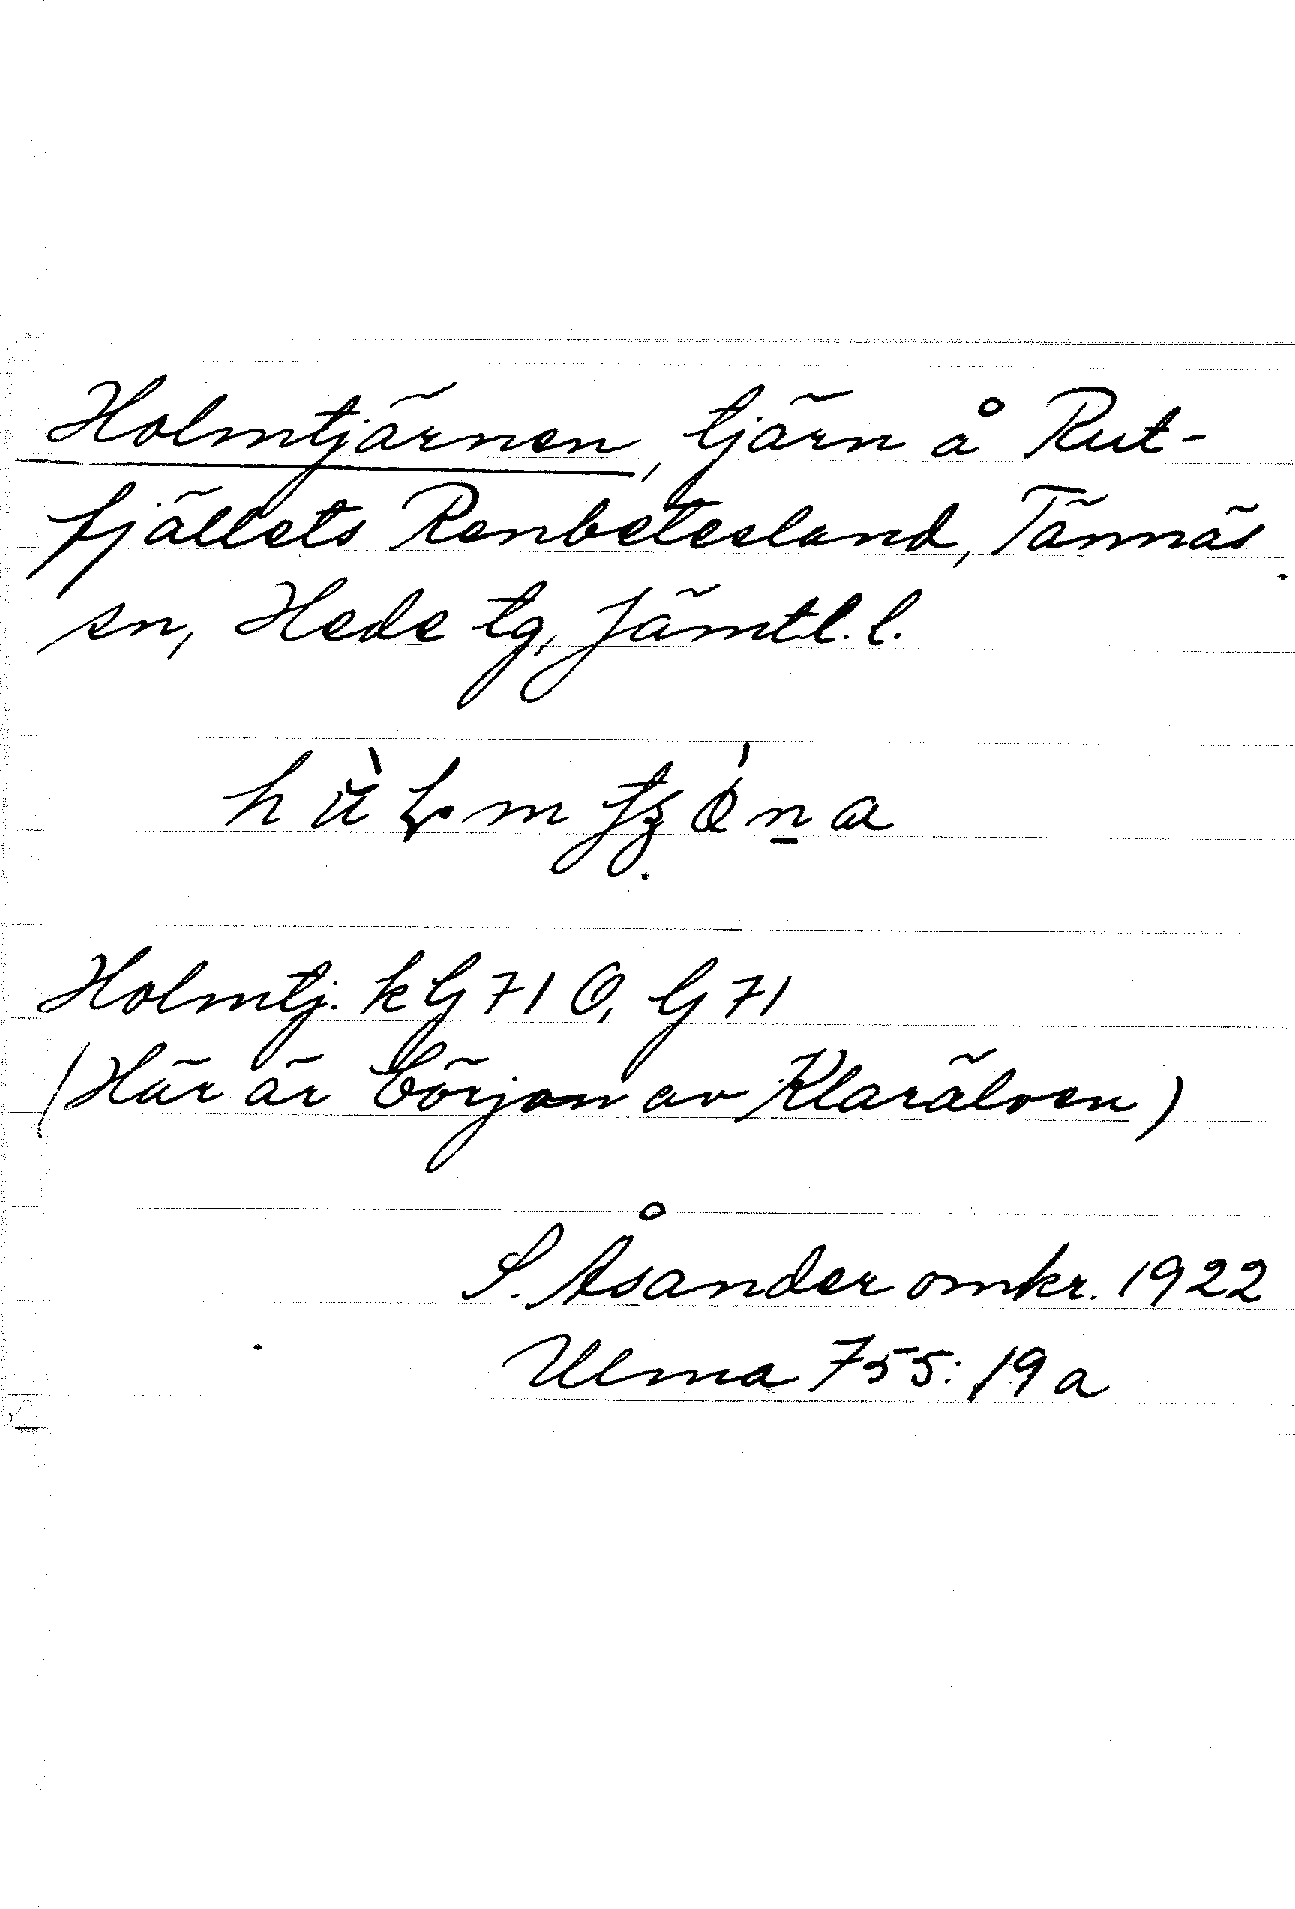 Holmtjärnen, tjärn å Rut-
fjällets Renbetesland, Tännäs
sn, Hede tg, Jämtl. l.
Holmtj. kG 71 O, G 71
(Här är början av Klarälven)
S. Åsander omkr. 1922
Ulma 755: 19 a